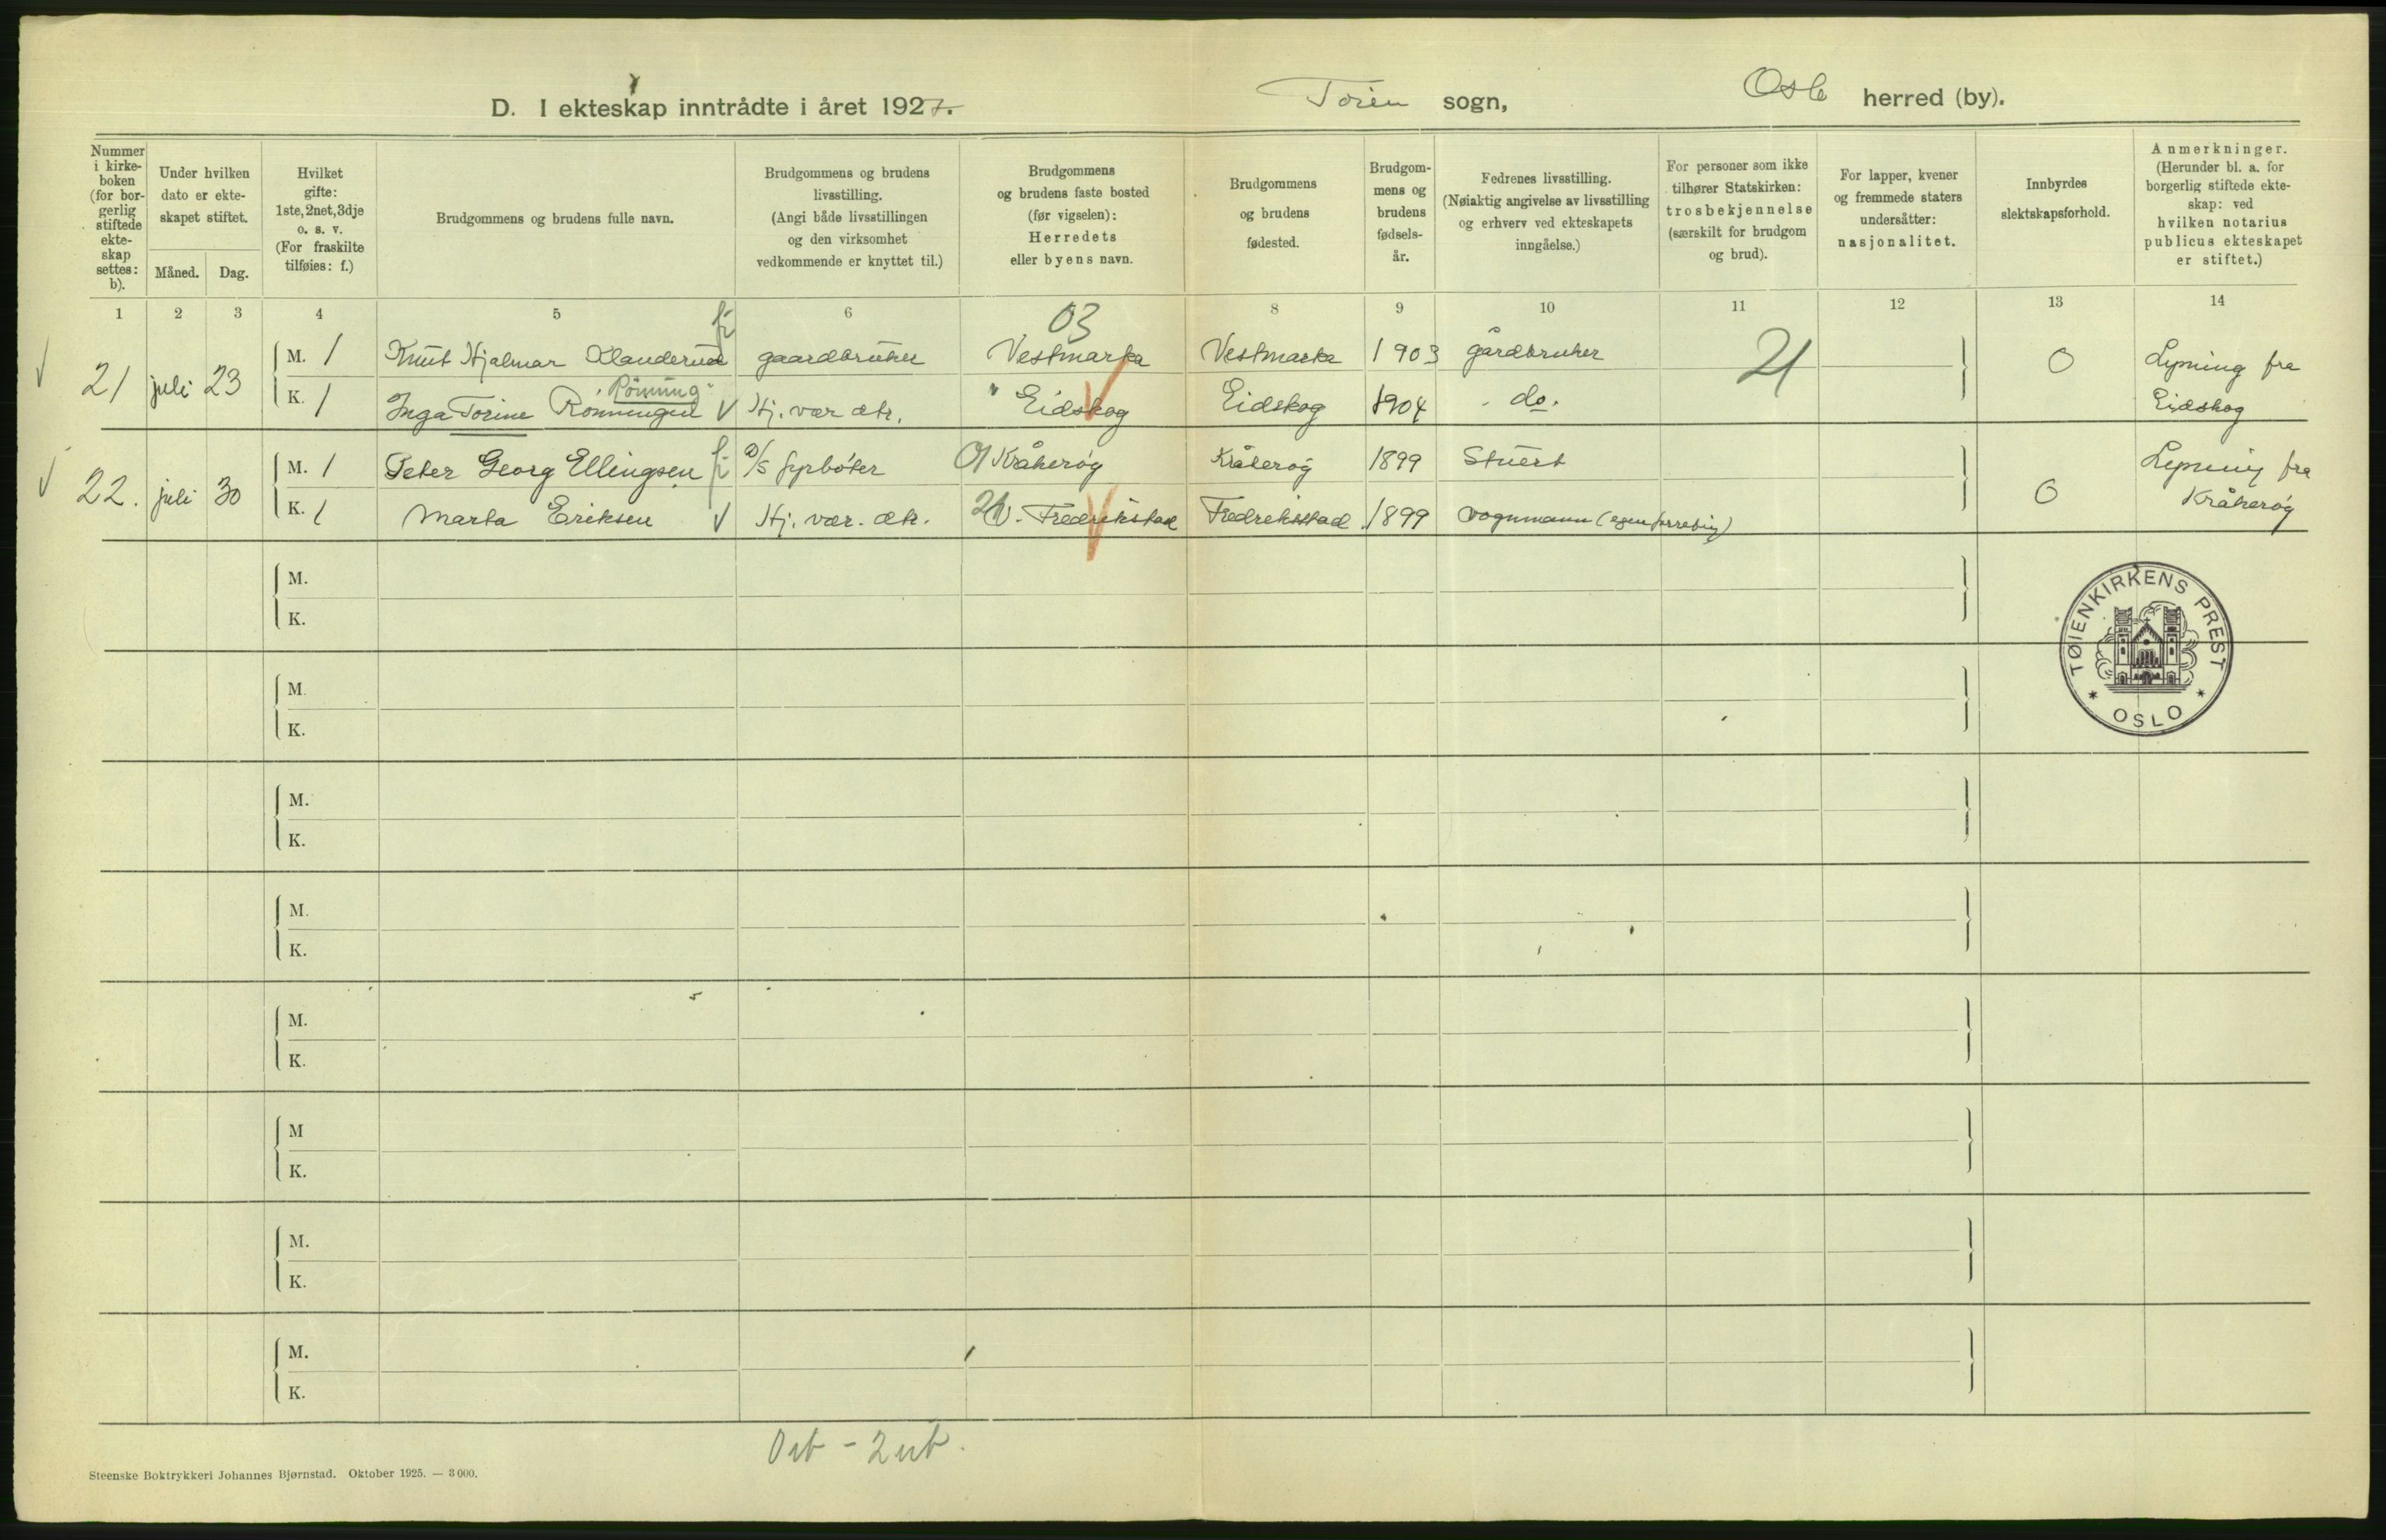 D. I ekteskap inntrådte i året 1927.
Töien sogn,
Oslo herred (by).
Nummer i kirkeboken (for borgerlig stiftede ekteskap settes: b).
Under hvilken dato er ekteskapet stiftet.
Måned. Dag.
Hvilket gifte: 1ste, 2net, 3dje o. s. v. (For fraskilte tilføies: f.)
Brudgommens og brudens fulle navn.
Brudgommens og brudens livsstilling. (Angi både livsstillingen og den virksomhet vedkommende er knyttet til.)
Brudgommens og brudens faste bosted (før vigselen): Herredets eller byens navn.
Brudgommens og brudens fødested.
Brudgommens og brudens fødselsår.
Fedrenes livsstilling. (Nøiaktig angivelse av livsstilling og erhverv ved ekteskapets inngåelse.)
For personer som ikke tilhører Statskirken: trosbekjennelse (særskilt for brudgom og brud).
For lapper, kvener og fremmede staters undersåtter: nasjonalitet.
Innbyrdes slektskapsforhold.
Anmerkninger. (Herunder bl. a. for borgerlig stiftede ekteskap: ved hvilken notarius publicus ekteskapet er stiftet.)
1 2 3 4 5 6 8 9 10 11 12 13 14
03
21 juli 23
M. 1 Knut Hjalmar Klanderud gaardbruker Vestmarka Vestmarka 1903 gårdbruker 21 0 Lysning fra
Rönning
K. 1 Inga Torine Rönningen Hj. vær. dtr. Eidskog Eidskog 1904 do. Eidskog
22. juli 30
M. 1 Peter Georg Ellingsen D/S fyrböter 01 Kråkeröy Kråkeröy 1899 Stuert Lysning fra
K. 1 Marta Eriksen Hj. vær. dtr. Fredrikstad Fredrikstad 1899 vognmann (egen forretn.) 0 Kråkeröy
M.
K.
M.
K.
M.
K.
M.
K.
M.
K.
M
K.
M.
K.
M.
K.
TØIENKIRKENS PREST
* OSLO *
Steenske Boktrykkeri Johannes Bjørnstad. Oktober 1925. — 3000.